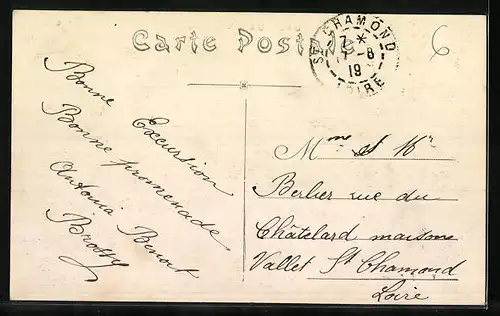 Carte Postale
ST CHAMOND
7 *
7-8
19
LOIRE
6
Bonne Excursion
Bonne promenade
Antonia Benoit
Brossy
Mme & Mr
Berlier rue du
Châtelard maisons
Vallet St Chamond
Loire